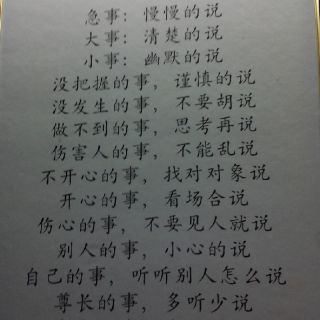 急事：慢慢的说
大事：清楚的说
小事：幽默的说
没把握的事，谨慎的说
没发生的事，不要胡说
做不到的事，思考再说
伤害人的事，不能乱说
不开心的事，找对对象说
开心的事，看场合说
伤心的事，不要见人就说
别人的事，小心的说
自己的事，听听别人怎么说
尊长的事，多听少说